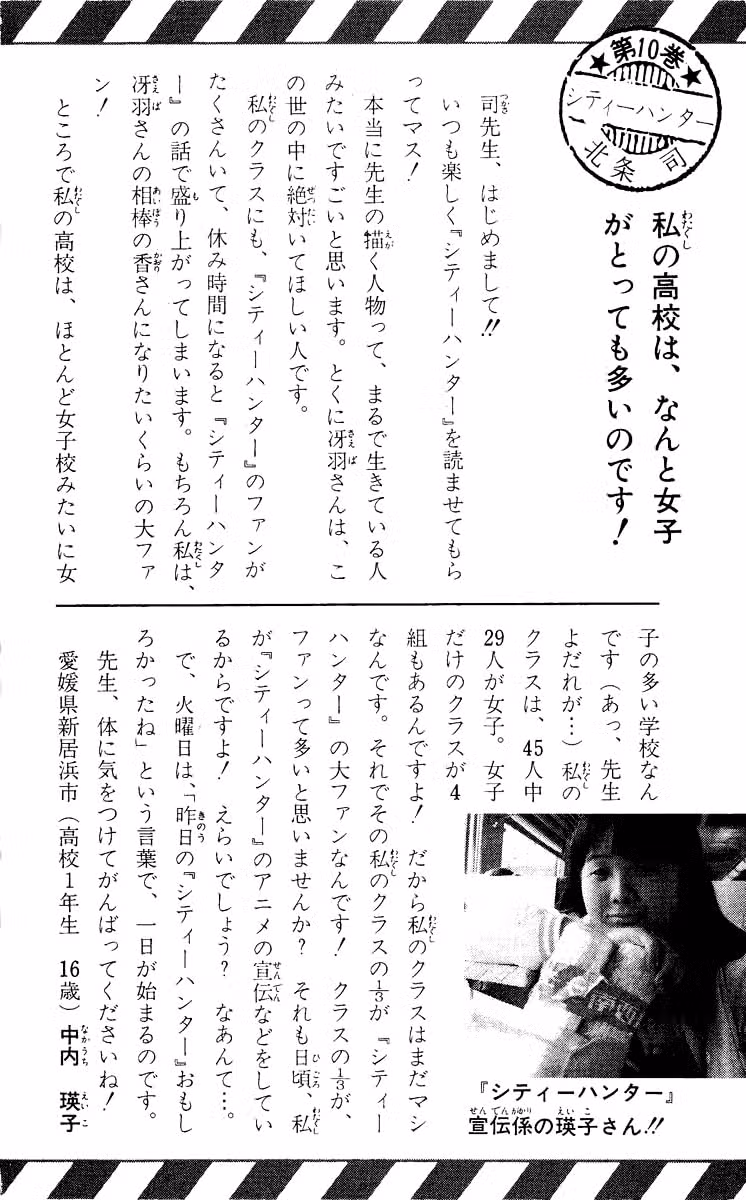 ★第10巻★
シティーハンター
北条 司
私の高校は、なんと女子
がとっても多いのです！
司先生、はじめまして!!
いつも楽しく『シティーハンター』を読ませてもら
ってマス！
本当に先生の描く人物って、まるで生きている人
みたいですごいと思います。とくに冴羽さんは、こ
の世の中に絶対いてほしい人です。
私のクラスにも、『シティーハンター』のファンが
たくさんいて、休み時間になると『シティーハンタ
ー』の話で盛り上がってしまいます。もちろん私は、
冴羽さんの相棒の香さんになりたいくらいの大ファ
ン！
ところで私の高校は、ほとんど女子校みたいに女
子の多い学校なん
です（あっ、先生
よだれが…）私の
クラスは、45人中
29人が女子。女子
だけのクラスが4
組もあるんですよ！　だから私のクラスはまだマシ
なんです。それでその私のクラスの⅓が『シティー
ハンター』の大ファンなんです！　クラスの⅓が、
ファンって多いと思いませんか？　それも日頃、私
が『シティーハンター』のアニメの宣伝などをしてい
るからですよ！　えらいでしょう？　なあんて…。
で、火曜日は、「昨日の『シティーハンター』おもし
ろかったね」という言葉で、一日が始まるのです。
先生、体に気をつけてがんばってくださいね！
愛媛県新居浜市（高校1年生　16歳）中内　瑛子
『シティーハンター』
宣伝係の瑛子さん!!